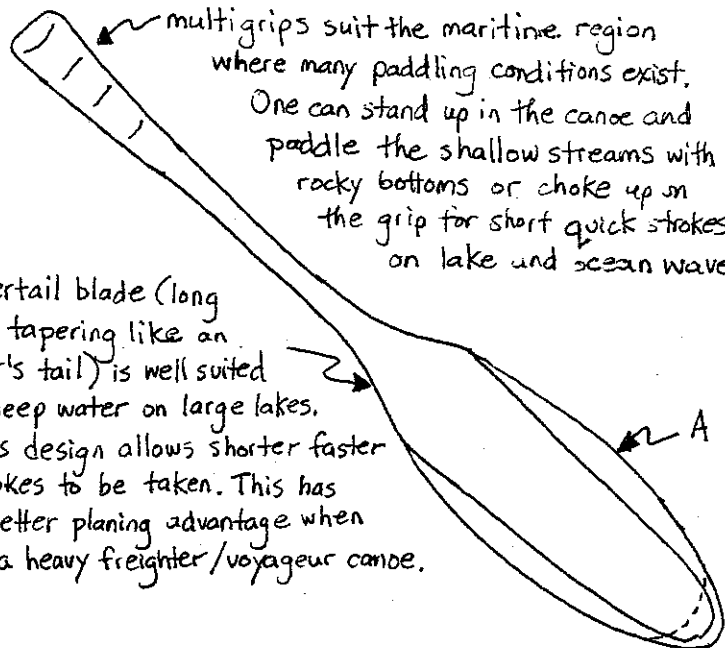 multigrips suit the maritime region
where many paddling conditions exist.
One can stand up in the canoe and
paddle the shallow streams with
rocky bottoms or choke up on
the grip for short quick strokes
on lake and ocean wave
ertail blade (long
tapering like an
r's tail) is well suited
eep water on large lakes.
s design allows shorter faster
okes to be taken. This has
etter planing advantage when
a heavy freighter/voyageur canoe.
A